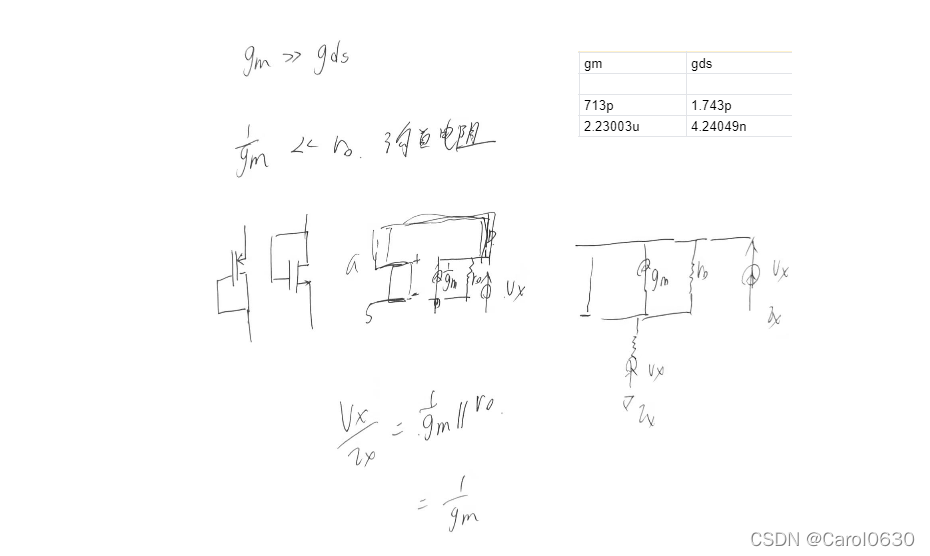 gm >> gds
gm gds
713p 1.743p
2.23003u 4.24049n
1/gm << ro. 沟道电阻
G
+
1/gm ro
-
Vx
S
gm ro Vx
Ix
Vx
Ix
Vx/Ix = 1/gm // ro.
= 1/gm
CSDN @Carol0630